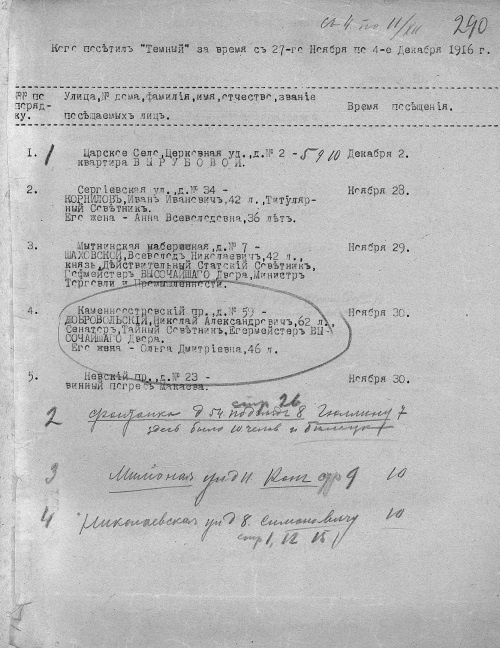 съ 4 по 11/XII
290
Кого посѣтилъ "Темный" за время съ 27-го Ноября по 4-е Декабря 1916 г.
№№ по поряд-ку.
Улица,№ дома,фамилія,имя,отчество,званіе посѣщаемыхъ лицъ.
Время посѣщенія.
I. 1 Царское Село,Церковная ул.,д.№ 2 - 5 9 10 Декабря 2.
квартира ВЫРУБОВОЙ.
2. Сергіевская ул.,д.№ 34 - Ноября 28.
КОРНИЛОВЪ,Иванъ Ивановичъ,42 л.,Титуляр-
ный Совѣтникъ.
Его жена - Анна Всеволодовна,36 лѣтъ.
3. Мытнинская набережная,д.№ 7 - Ноября 29.
ШАХОВСКОЙ,Всеволодъ Николаевичъ,42 л.,
князь,Дѣйствительный Статскій Совѣтникъ,
Гофмейстеръ ВЫСОЧАЙШАГО Двора,Министръ
Торговли и Промышленности.
4. Каменноостровскій пр.,д.№ 59 - Ноября 30.
ДОБРОВОЛЬСКІЙ,Николай Александровичъ,62 л.,
Сенаторъ,Тайный Совѣтникъ,Егермейстеръ ВЫ-
СОЧАЙШАГО Двора.
Его жена - Ольга Дмитріевна,46 л.
5. Невскій пр.,д.№ 23 - Ноября 30.
винный погребъ Макаева.
стр 26
2 Фонтанка д 54 8 7
здесь было
3 Милионая ул д 11 9 10
4 Николаевская ул д 8. Симановичу 10
стр 1, 12 15